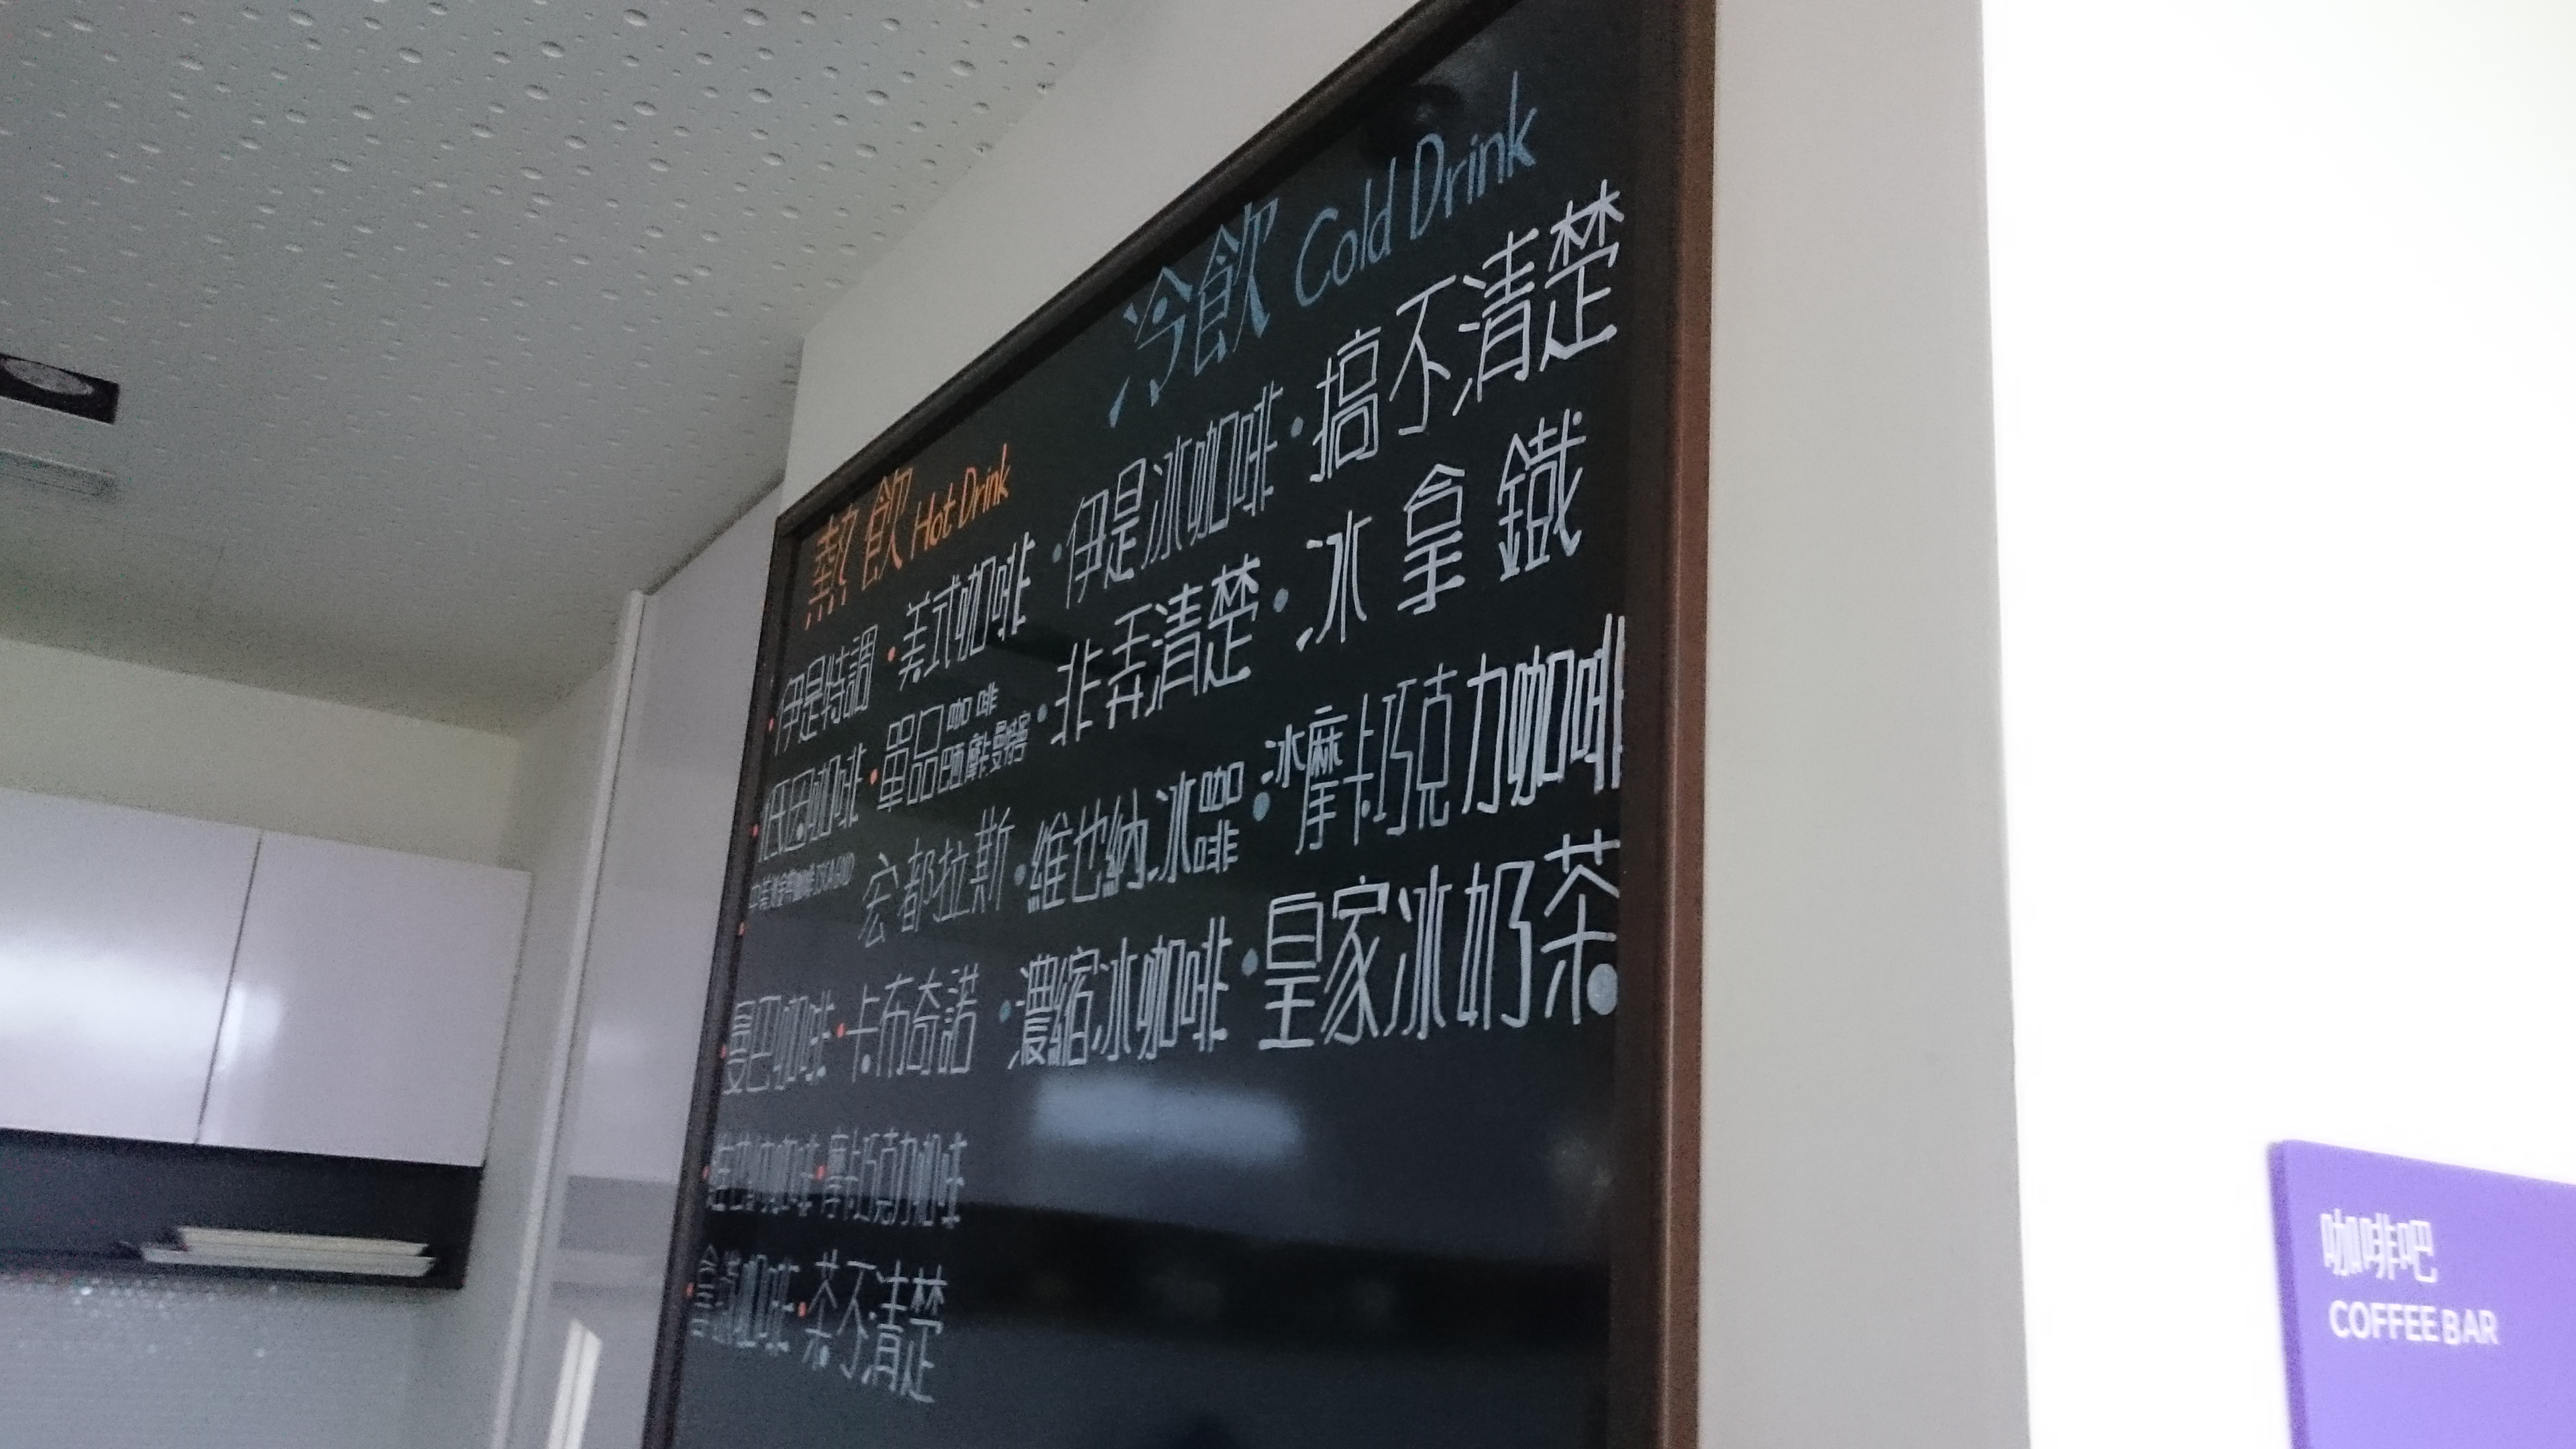 熱飲 Hot Drink
•伊是特調 •美式咖啡
•低因咖啡 •單品咖啡
宏都拉斯
•曼巴咖啡 •卡布奇諾
•維也納咖啡 •摩卡巧克力咖啡
•拿鐵咖啡 •茶不清楚
冷飲 Cold Drink
•伊是冰咖啡 •搞不清楚
•非弄清楚 •冰拿鐵
•維也納冰咖啡 •冰摩卡巧克力咖啡
•濃縮冰咖啡 •皇家冰奶茶
咖啡吧
COFFEE BAR